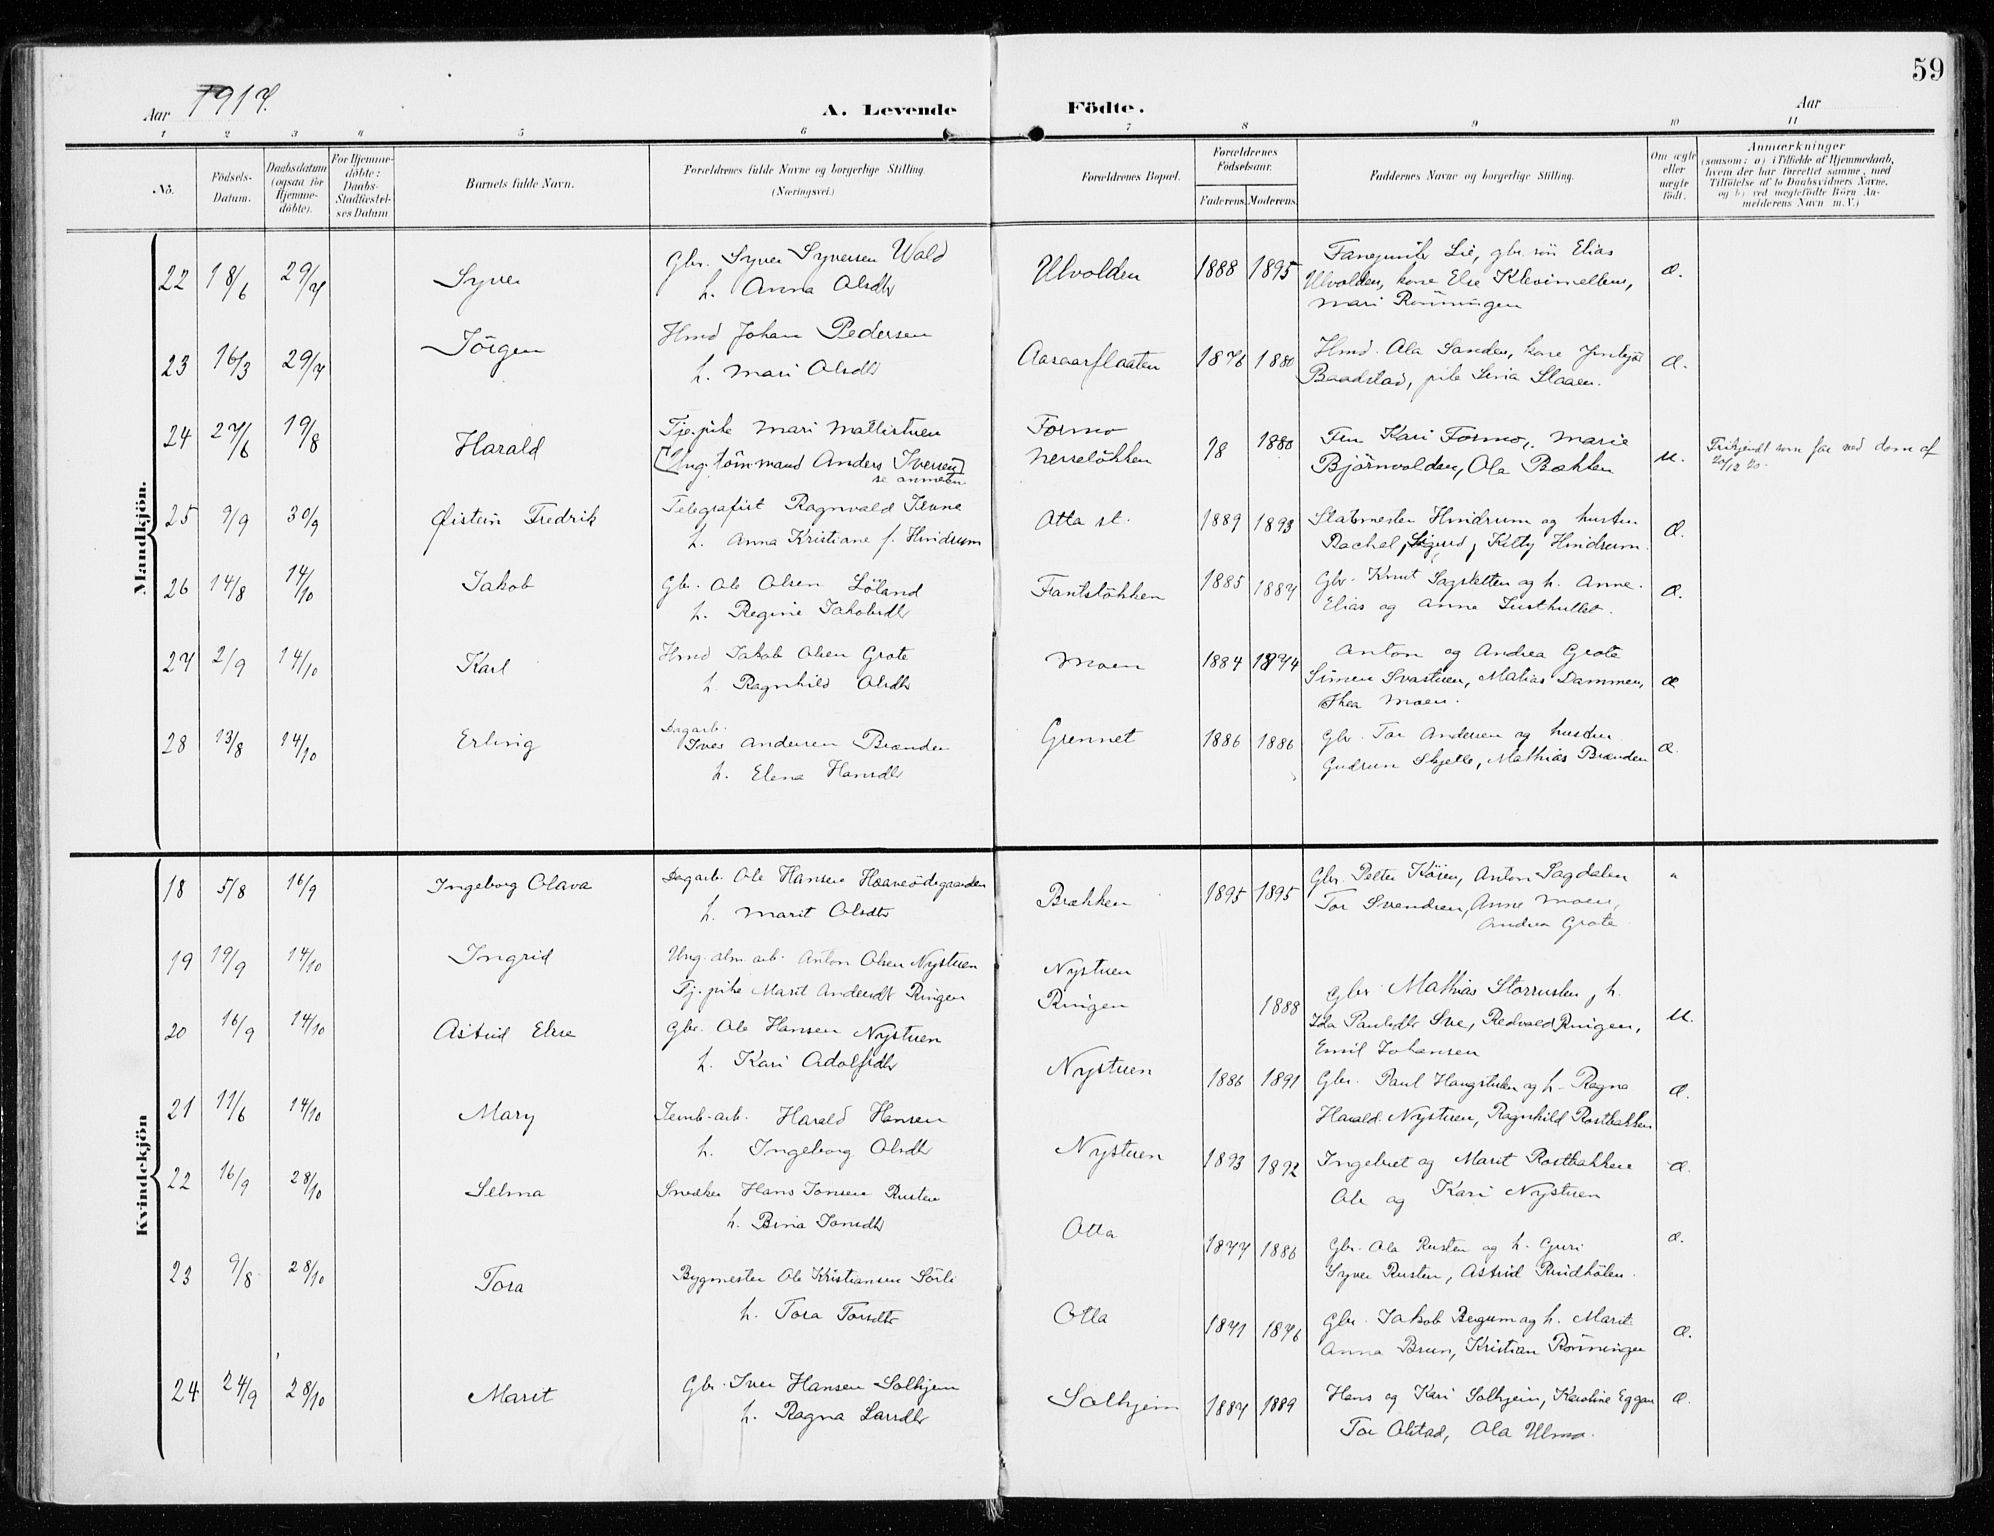 59
Aar 1917.
A. Levende Födte.
Aar
1 2 3 4 5 6 7 8 9 10 11
No. Födsels-Datum. Daabsdatum (ogsaa for Hjemme-döbte). For Hjemme-döbte: Daabs-Stadfæstel-ses Datum Barnets fulde Navn. Forældrenes fulde Navne og borgerlige Stilling. (Næringsvei.) Forældrenes Bopæl. Forældrenes Födselsaar. Faderens. Moderens. Faddernes Navne og borgerlige Stilling. Om ægte eller uægte födt. Anmærkninger (saasom: a) i Tilfælde af Hjemmedaab, hvem der har forrettet samme, med Tilföielse af to Daabsvidners Navne, og b) ved uægtefödte Börn An-melderens Navn m. V.)
Mandkjön.
22 18/6 29/7 Syver Gbr. Syver Syversen Wald Ulvolden 1888 1895 Lie, gbr. sön Elias æ.
h. Anna Olsdtr Ulvolden, kone Else Klevimellem,
Mari Rönningen
23 16/3 29/7 Jörgen Hmd Johan Pedersen Aasaarflaaten 1876 1880 Hmd. Ola Sanden, kone æ.
h. Mari Olsdtr Baadstad, pike Siria Slaaen.
24 27/6 19/8 Harald Tje.pike Mari Mattistuen Formo 98 1880 Fru Kari Formo, Marie u. Frikjendt som far ved dom af
[Ung. tömmand Anders Iversen] Nerelökken Björnvolden, Ola Bækken 20/12 20.
se anmerkn
25 9/9 30/9 Øistein Fredrik Telegrafist Ragnvald Otta st. 1889 1893 Hindrum og hustru æ.
h. Anna Kristiane f. Hindrum Rachel, Sigurd, Kitty Hindrum.
26 14/8 14/10 Jakob Gbr. Ole Olsen Löland Frantslökken 1885 1887 Gbr. Knut Sagsletten og h. Anne. æ.
h. Regine Jakobsdtr Elias og Anna
27 2/9 14/10 Karl Hmd Jakob Olsen Grote Moen 1884 1874 Anton og Andrea Grote æ
h. Ragnhild Olsdtr Simen Svastuen, Matias Dammen,
Thea Moen.
28 13/8 14/10 Erling Dagarb. Iver Andersen Brænden Grennet 1886 1886 Gbr. Tor Andersen og hustru æ.
h. Elena Hansdtr Gudrun Skjelle, Mathias Brænden
Kvindekjön
18 5/8 16/9 Ingeborg Olava Dagarb. Ole Hansen Haaneödegaarden Brækken 1895 1895 Gbr. Petter Anton Sagdalen "
h. Marit Olsdtr Tor Svendsen, Anne Moen,
Andrea Grote
19 19/9 14/10 Ingrid Ung. alm. arb. Anton Olsen Nystuen Nystuen
Tj. pike Marit Andersdt Ringen Ringen 1888 Gbr. Mathias Storrusten, h. u.
Ida Paulsdtr Sve, Redvald Ringen,
Emil Johansen
20 16/9 14/10 Astrid Else Gbr. Ole Hansen Nystuen Nystuen 1886 1891 Gbr. Paul Haugstulen og h. Ragna æ.
h. Kari Adolfsdtr Harald Nystuen, Ragnhild Rostbakken
21 11/6 14/10 Mary Jernb-arb. Harald Hansen Nystuen 1893 1892 Ingebret og Marit Rostbakken æ.
h. Ingeborg Olsdtr Ole og Kari Nystuen
22 16/9 28/10 Selma Snedker Hans Jonsen Rusten Otta 1877 1886 Gbr. Ola Rusten og h. Guri æ.
h. Bina Jonsdtr Syver Rusten, Astrid Rindhölen.
23 9/8 28/10 Tora Bygmester Ole Kristiansen Sörli Otta 1871 1876 Gbr. Jakob Bergum og h. Marit æ.
h. Tora Torsdtr Anna Brun, Kristian Rönningen
24 24/9 28/10 Marit Gbr. Iver Hansen Solhjem Solhjem 1887 1889 Hans og Kari Solhjem, Karoline Eggen æ.
h. Ragna Larsdtr Tor Olstad, Ola Ulmo.